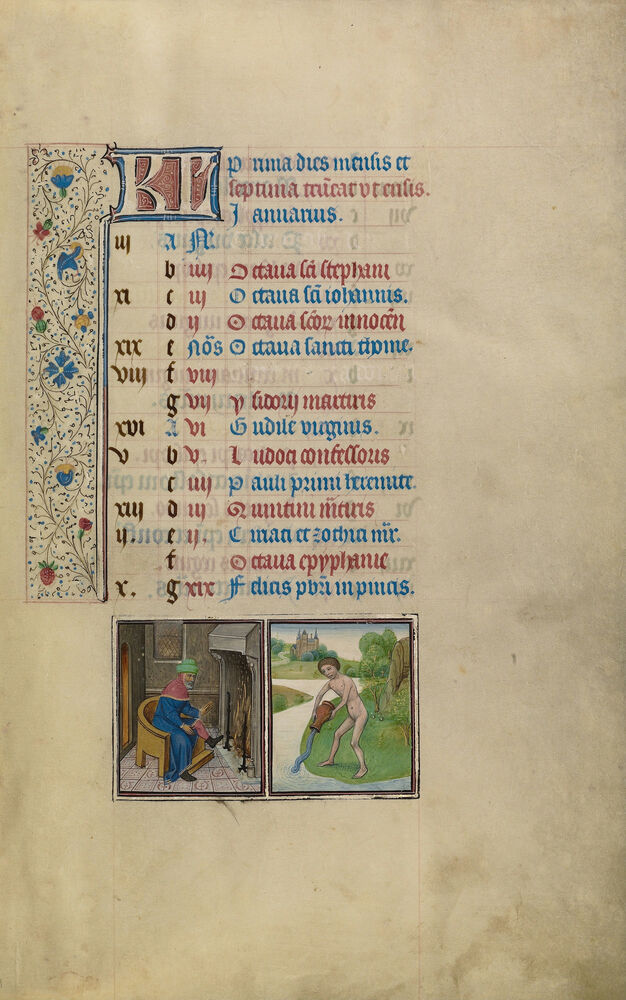 KL Prima dies mensis et
septima trūcat vt ensis.
Januarius.
iij A Nͬ.
b iiij Octaua sc̄i stephani
xi c iij Octaua sc̄i iohannis.
d ij Octaua sc̄oꝝ innocēn
xix e nōs Octaua sancti thome.
viij f viij
g vij ysidorij martiris
xvi A vi Gudile virginis.
v b v. Iudoci confessoris
c iiij Pauli primi heremite.
xiij d iij Quintini m̄tiris
ij. e ij. Ciriaci et zothici mr̄.
f Octaua epyphanie
x. g xix Felicis pbr̄i in pincis.